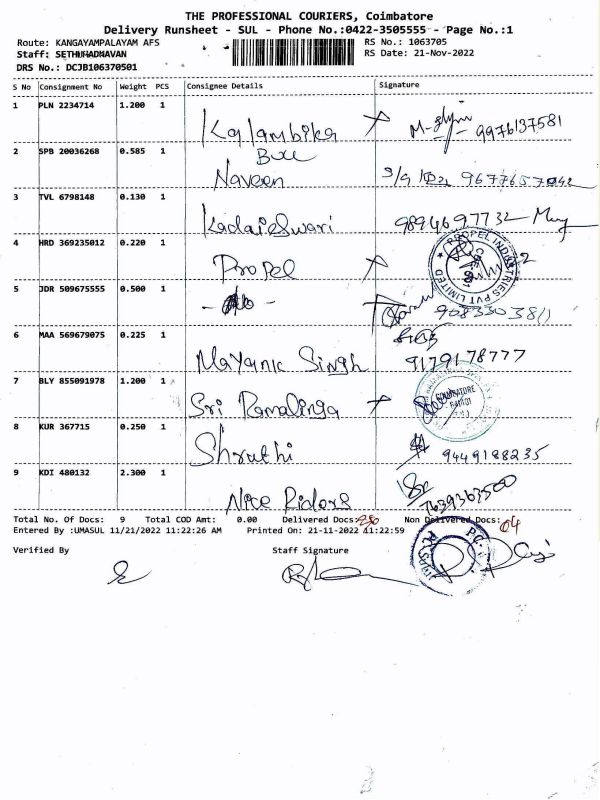 THE PROFESSIONAL COURIERS, Coimbatore
Delivery Runsheet - SUL - Phone No.:0422-3505555 - Page No.:1
Route: KANGAYAMPALAYAM AFS RS No.: 1063705
Staff: SETHUMADHAVAN RS Date: 21-Nov-2022
DRS No.: DCJB106370501
S No Consignment No Weight PCS Consignee Details Signature
1 PLN 2234714 1.200 1 Kalambika 9976137581
2 SPB 20036268 0.585 1 Naveen 9677657042
3 TVL 6798148 0.130 1 Kadaieswari 9894697732
4 HRD 369235012 0.220 1 Propel
PROPEL INDUSTRIES PVT LIMITED
5 JDR 509675555 0.500 1 - do -
6 MAA 569679075 0.225 1 Mayank Singh 9179178777
7 BLY 855091978 1.200 1 Sri Ramalinga
COIMBATORE
8 KUR 367715 0.250 1 Shruthi 9449188235
9 KDI 480132 2.300 1 Nice Riders 7639363500
Total No. Of Docs: 9 Total COD Amt: 0.00 Delivered Docs: Non Delivered Docs: 04
Entered By :UMASUL 11/21/2022 11:22:26 AM Printed On: 21-11-2022 11:22:59
Verified By Staff Signature